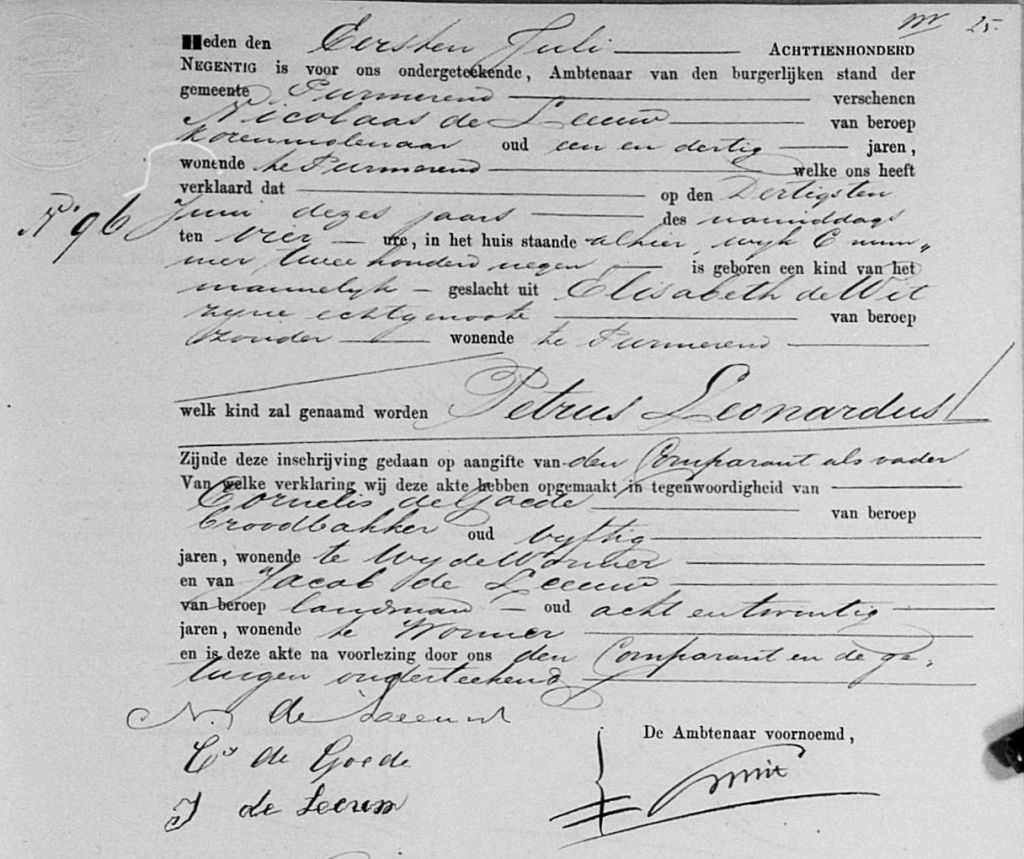 25.
Heden den Eersten Juli ACHTTIENHONDERD
NEGENTIG is voor ons ondergeteekende, Ambtenaar van den burgerlijken stand der
gemeente Purmerend verschenen
Nicolaas de Leeuw van beroep
korenmolenaar oud een en dertig jaren,
wonende te Purmerend welke ons heeft
verklaard dat op den Dertigsten
No 96 Juni dezes jaars des namiddags
ten vier ure, in het huis staande alhier, wyk C num„
mer twee honderd negen is geboren een kind van het
mannelyk geslacht uit Elisabeth de Wit
zyne echtgenoote van beroep
zonder wonende te Purmerend
welk kind zal genaamd worden Petrus Leonardus
Zijnde deze inschrijving gedaan op aangifte van den Comparant als vader
Van welke verklaring wij deze akte hebben opgemaakt in tegenwoordigheid van
Cornelis de Goede van beroep
broodbakker oud vyftig
jaren, wonende te Wyde Wormer
en van Jacob de Leeuw
van beroep landman oud acht en twintig
jaren, wonende te Wormer
en is deze akte na voorlezing door ons den Comparant en de ge„
tuigen onderteekend
N. de Leeuw
De Ambtenaar voornoemd,
Cs de Goede
J de Leeuw